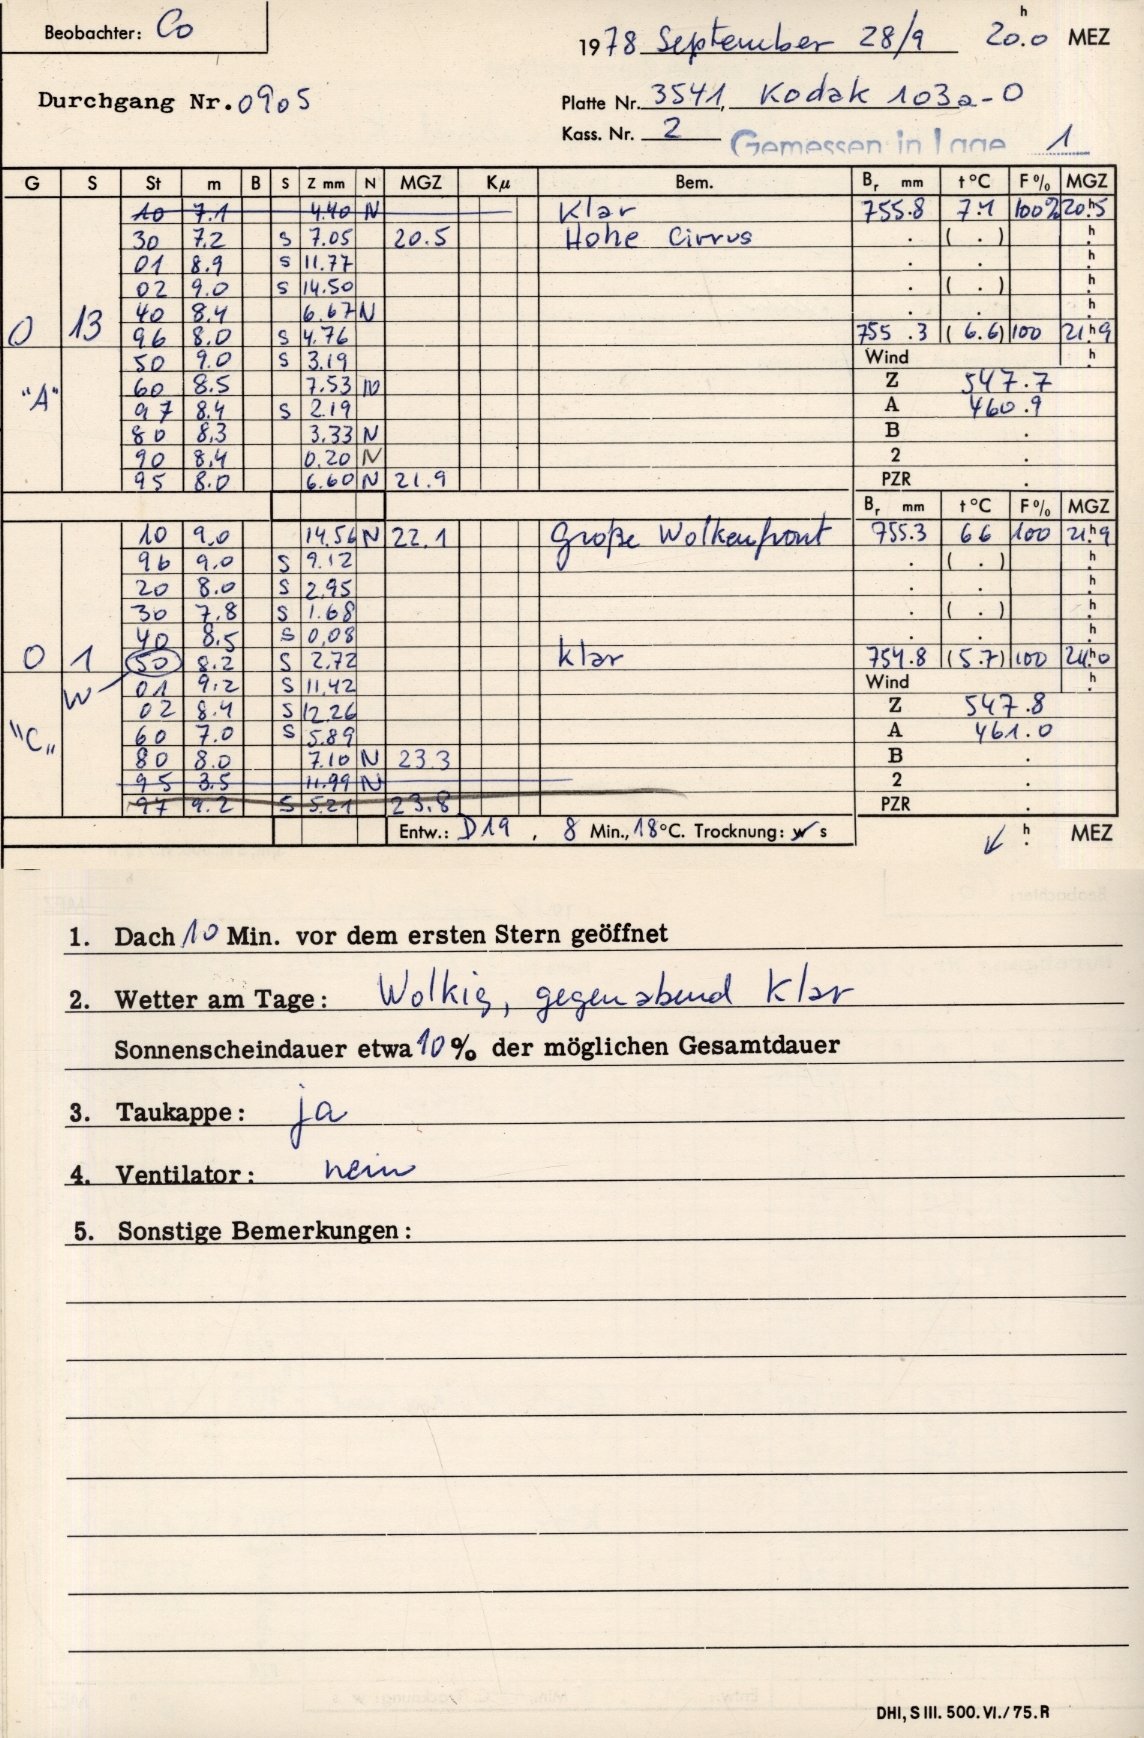 Beobachter: Co
1978 September 28/9 20.0 h MEZ
Durchgang Nr. 0905
Platte Nr. 3541, Kodak 103a-O
Kass. Nr. 2 Gemessen in Lage 1
G S St m B S Z mm N MGZ Kμ Bem. Br mm t°C F% MGZ
10 7.1 4.40 N Klar 755.8 7.1 100% 20.5 h
30 7.2 S 7.05 20.5 Hohe Cirrus . ( . ) . h
01 8.9 S 11.77 . . . h
02 9.0 S 14.50 . ( . ) . h
40 8.4 6.67 N . . . h
0 13 96 8.0 S 4.76 755.3 (6.6) 100 21.9 h
50 9.0 S 3.19 Wind . h
"A" 60 8.5 7.53 N Z 547.7
97 8.4 S 2.19 A 460.9
80 8,3 3.33 N B .
90 8,4 0.20 N 2 .
95 8.0 6.60 N 21.9 PZR .
Br mm t°C F% MGZ
10 9,0 14.56 N 22.1 Große Wolkenfront 755.3 6 6 100 21.9 h
96 9.0 S 9.12 . ( . ) . h
20 8.0 S 2.95 . . . h
30 7,8 S 1.68 . ( . ) . h
40 8.5 S 0,08 . . . h
0 1 50 8.2 S 2.72 klar 754.8 (5.7) 100 24.0 h
W 01 9.2 S 11.42 Wind . h
02 8.4 S 12.26 Z 547.8
"C„ 60 7.0 S 5.89 A 461.0
80 8.0 7.10 N 23.3 B .
95 3.5 11.99 N 2 .
97 9.2 S 5.21 23.8 PZR .
Entw.: D19 , 8 Min., 18°C. Trocknung: w s . h MEZ
1. Dach 10 Min. vor dem ersten Stern geöffnet
2. Wetter am Tage: Wolkig, gegen abend klar
Sonnenscheindauer etwa 10% der möglichen Gesamtdauer
3. Taukappe: ja
4. Ventilator: nein
5. Sonstige Bemerkungen:
DHI, S III. 500. VI. / 75. R